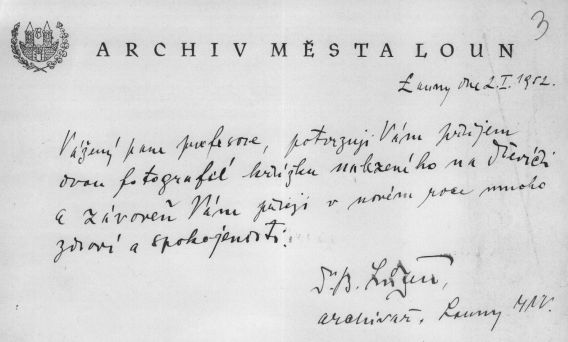 3
ARCHIV MĚSTA LOUN
Louny dne 2.I.1952.
Vážený pane profesore, potvrzuji Vám příjem
dvou fotografií křížku nalezeného na Dřevíči
a zároveň Vám přeji v novém roce mnoho
zdraví a spokojenosti.
Dr. B.
archivář, Louny